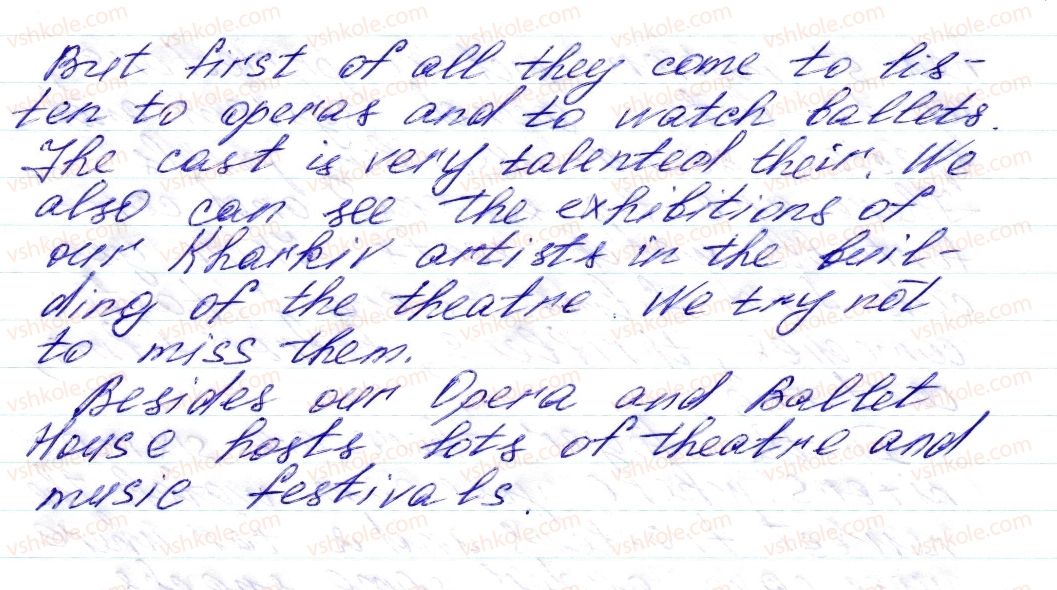 But first of all they come to lis-
ten to operas and to watch ballets.
The cast is very talented their. We
also can see the exhibitions of
our Kharkiv artists in the buil-
ding of the theatre. We try not
to miss them.
Besides our Opera and Ballet
House hosts lots of theatre and
music festivals.